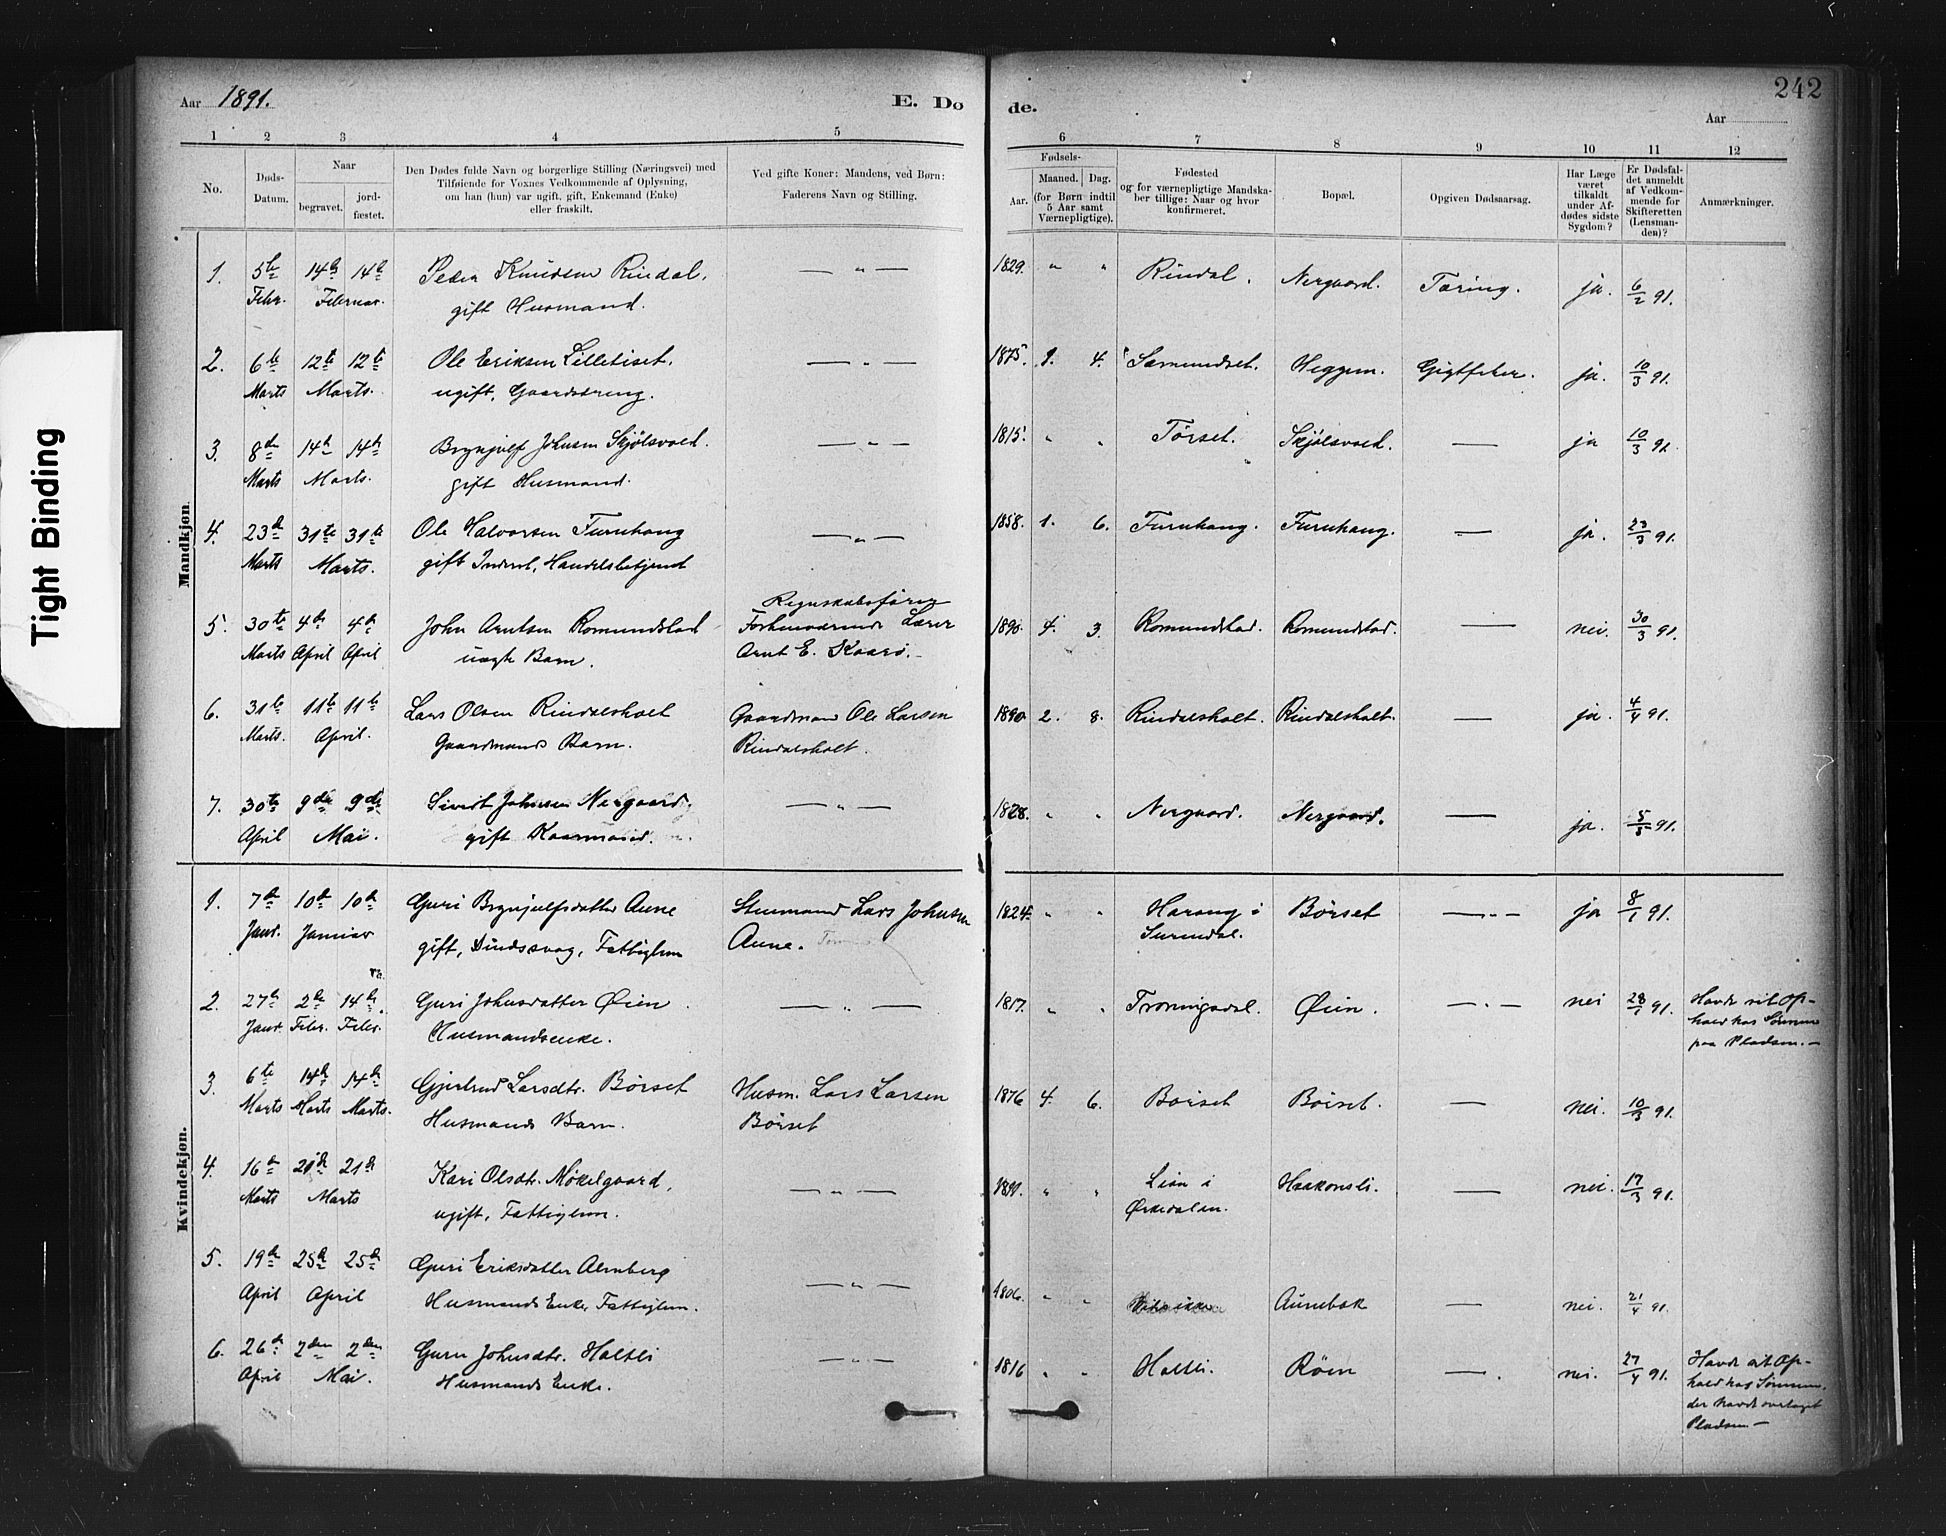 Aar 1891.
E. Do
de.
242
Aar
1 2 3 4 5 6 7 8 9 10 11 12
No.
Døds-
Datum.
Naar
begravet.
jord-
fæstet.
Den Dødes fulde Navn og borgerlige Stilling (Næringsvei) med
Tilføiende for Voxnes Vedkommende af Oplysning,
om han (hun) var ugift, gift, Enkemand (Enke)
eller fraskilt.
Ved gifte Koner: Mandens, ved Børn:
Faderens Navn og Stilling.
Fødsels-
Aar.
Maaned. Dag.
(for Børn indtil
5 Aar samt
Værnepligtige).
Fødested
og for værnepligtige Mandska-
ber tillige: Naar og hvor
konfirmeret.
Bopæl.
Opgiven Dødsaarsag.
Har Læge
været
tilkaldt
under Af-
dødes sidste
Sygdom?
Er Dødsfal-
det anmeldt
af Vedkom-
mende for
Skifteretten
(Lensman-
den)?
Anmærkninger.
Tight Binding
Mandkjøn.
1. 5te 14de 14de Peder Knudsen Rindal, — " — 1829. " " Rindal. Nergaard. Tæring. ja. 6/2 91.
Febr. Februar. gift Husmand.
2. 6te 12te 12te Ole Eriksen Lilletiset, — " — 1875. 9. 4. Sæmundset. Heggem. Gigtfeber. ja. 10/3 91.
Marts Marts. ugift, Gaardsdreng.
3. 8de 14de 14de Brynjulf Johnsen Skjølsvold. — " — 1815. " " Tørset. Skjølsvold. — ja 10/3 91.
Marts Marts. gift Husmand.
4. 23de 31te 31te Ole Halvorsen Furuhaug — " — 1858. 1. 6. Furuhaug. Furuhaug. — ja. 23/3 91.
Marts Marts. gift Inderst, Handelsbetjent
Regnskabsfører
5. 30te 4de 4de John Arntsen Romundstad Forhenværende Lærer 1890. 4. 3. Romundstad. Romundstad. — nei. 30/3 91.
Marts April April uægte Barn. Arnt E.
6. 31te 11te 11te Lars Olsen Rindalsholt Gaardmand Ole Larsen 1890. 2. 8. Rindalsholt. Rindalsholt. — ja. 4/4 91.
Marts. April. Gaardmands Barn. Rindalsholt.
7. 30te 9de 9de Sivert Johnsen Nergaard, — " — 1828. " " Nergaard. Nergaard. — ja. 5/5 91.
April Mai. gift Kaarmand.
Kvindekjøn.
1. 7de 10de 10de Guri Brynjulfsdatter Aune Lars Johnsen 1824. " " Harang i Børset — " — ja 8/1 91.
Janr. Januar gift, Sindssvag, Fattiglem Aune. Surendal.
2. 27de 2de 14de Guri Johnsdatter Øien — " — 1817. " " Troningsdal. Øien. — " — nei 28/1 91. Havde sit Op-
Janr. Febr. Febr. Husmandsenke. hold hos Sønnen
paa Pladsen. —
3. 6te 14de 14de Gjertrud Larsdtr. Børset Husm. Lars Larsen 1876 4. 6. Børset Børset. — nei. 10/3 91.
Marts Marts Marts. Husmands Barn. Børset
4. 16de 21de 21de Kari Olsdtr. Mokelgaard, — " — " " Lian i Haakonsli. — nei. 17/3 91.
Marts Marts ugift, Fattiglem. Ørkedalen.
5. 19de 25de 25de Guri Eriksdatter Almberg — " — 1806. " " Vides ikke Aunebak — nei. 21/4 91.
April April Husmands Enke, Fattiglem.
6. 26de 2den 2den Guru Johnsdtr. Holtli — " — 1816 " " Holtli. Røen — . nei. 27/4 91. Havde sit Op-
April Mai. Husmands Enke. hold hos Sønnen,
der havde overtaget
Pladsen —